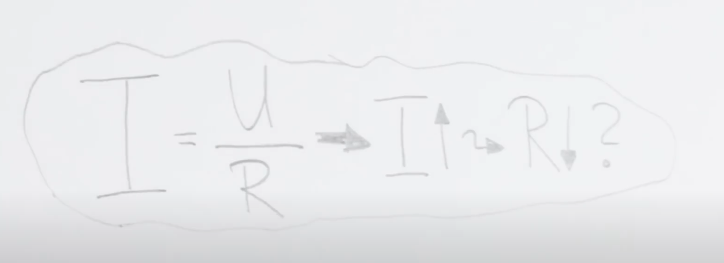 I = U/R ➡ I↑ ⤳ R↓ ?